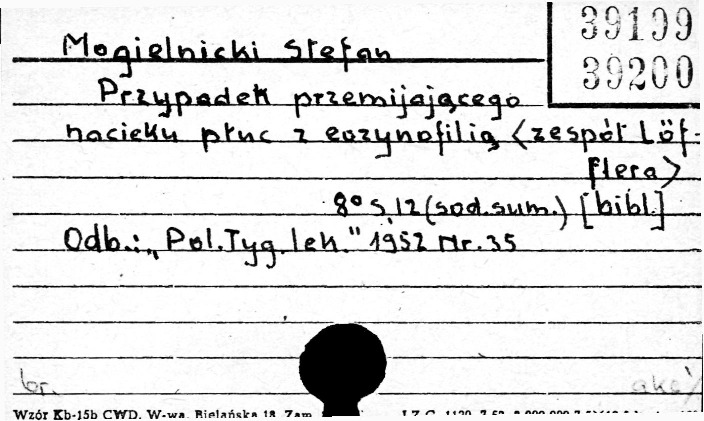 39199
39200
Mogielnicki Stefan
Przypadek przemijającego
nacieku płuc z eozynofilią <zespół Löf-
flera>
8° s.12 (sod.sum.) [bibl.]
Odb.: „Pol.Tyg.lek." 1952 Nr.35
br. akc/
Wzór Kb-15b CWD, W-wa, Bielańska 18, Zam.